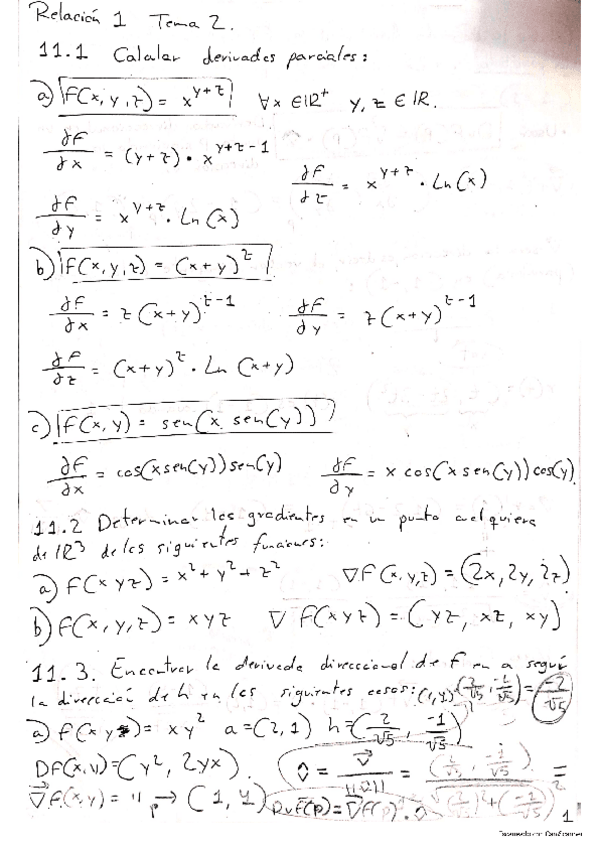 Relación 1 Tema 2.
11.1 Calcular derivadas parciales:
a) f(x, y, z) = x^{y+z} ∀x ∈ ℝ⁺ y, z ∈ ℝ.
∂f/∂x = (y+z) · x^{y+z-1}
∂f/∂z = x^{y+z} · Ln(x)
∂f/∂y = x^{y+z} · Ln(x)
b) f(x, y, z) = (x+y)^z
∂f/∂x = z(x+y)^{z-1} ∂f/∂y = z(x+y)^{z-1}
∂f/∂z = (x+y)^z · Ln(x+y)
c) f(x, y) = sen(x sen(y))
∂f/∂x = cos(x sen(y)) sen(y) ∂f/∂y = x cos(x sen(y)) cos(y)
11.2 Determinar los gradientes en un punto cualquiera
de ℝ³ de las siguientes funciones:
a) f(x y z) = x² + y² + z² ∇f(x, y, z) = (2x, 2y, 2z)
b) f(x, y, z) = x y z ∇ f(x y z) = (yz, xz, xy)
11.3. Encontrar la derivada direccional de f en a según
la dirección de h en los siguientes casos: (1, 4) (2/√5, -1/√5) = -2/√5
a) f(x y) = xy² a = (2, 1) h = (2/√5, -1/√5)
Df(x, y) = (y², 2yx)
∇f(x, y) = " p → (1, 4) Dvf(p) = ∇f(p) ·
1